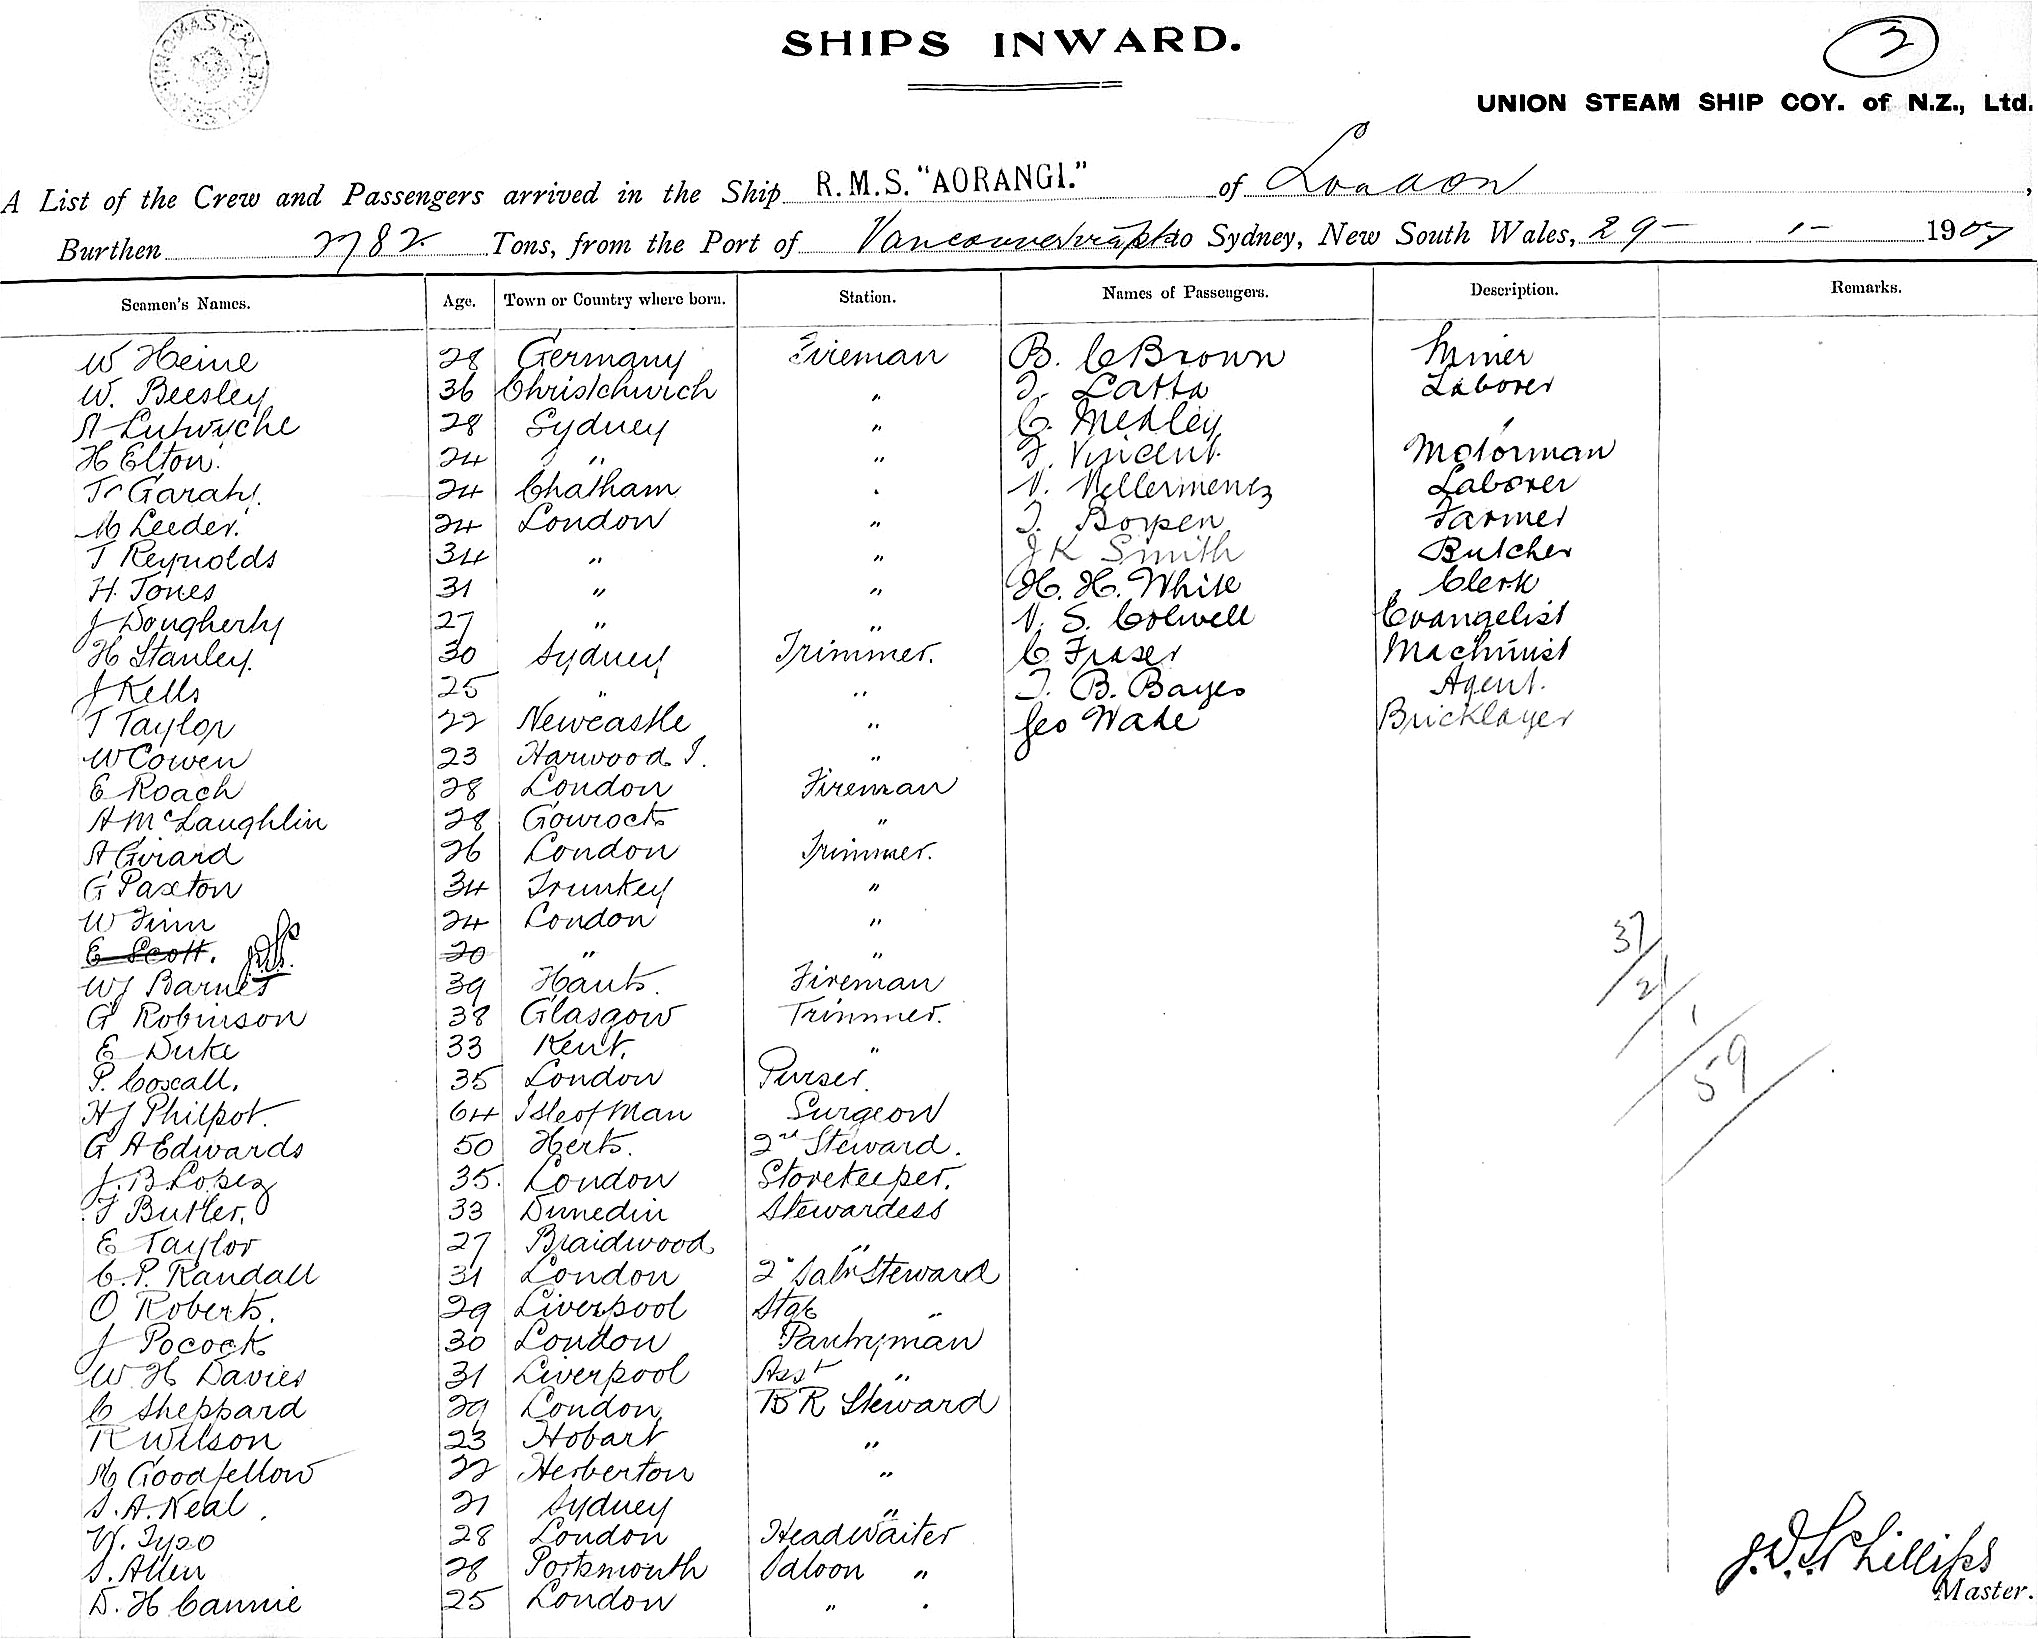 SHIPS INWARD.
2
UNION STEAM SHIP COY. of N.Z., Ltd.
A List of the Crew and Passengers arrived in the Ship R.M.S. "AORANGI." of London,
Burthen 2782 Tons, from the Port of Vancouver to Sydney, New South Wales, 29 - 1 - 1907
Seamen's Names. Age. Town or Country where born. Station. Names of Passengers. Description. Remarks.
W Heine 28 Germany Fireman B. C Brown Miner
W. Beesley 36 Christchurch " T. Latta Laborer
A Lutwyche 28 Sydney " C. Medley "
H Elton. 24 " " F. Vincent. Motorman
Garah 24 Chatham " V. Laborer
M Leeder. 24 London " Farmer
T Reynolds 34 " " J K Smith Butcher
H. Jones 31 " " H. H. White Clerk
J Dougherty 27 " " V. S. Colwell Evangelist
H Stanley. 30 Sydney Trimmer. C Fraser Machinist
J Kells 25 " " T. B. Bayes Agent.
T Taylor 22 Newcastle " Geo Wade Bricklayer
W Cowen 23 Harwood I. "
E Roach 28 London Fireman
A McLaughlin 28 Gourock "
A Girard 26 London Trimmer.
G Paxton 34 Trunkey "
W Finn 24 London "
E Scott. 20 " "
W J Barnes 39 Hants. Fireman
G Robinson 38 Glasgow Trimmer.
E Duke 33 Kent. "
P. Coxall. 35 London Purser
H J Philpot. 64 Isle of Man Surgeon
G A Edwards 50 Herts. 2nd Steward.
J. B Lopez 35. London Storekeeper.
F Butler. 33 Dunedin Stewardess
E Taylor 27 Braidwood "
C. P. Randall 31 London 2" Saln Steward
O Roberts. 29 Liverpool Stge "
J Pocock 30 London Pantryman
W H Davies 31 Liverpool Asst "
C Sheppard 29 London B R Steward
R Wilson 23 Hobart "
M Goodfellow 22 Herberton "
S. A. Neal 21 Sydney "
W. Tyzo 28 London Head Waiter
S. Allen 28 Portsmouth Saloon "
D. H Cannie 25 London " "
37/21/1/59
J. D. S. Phillips
Master.